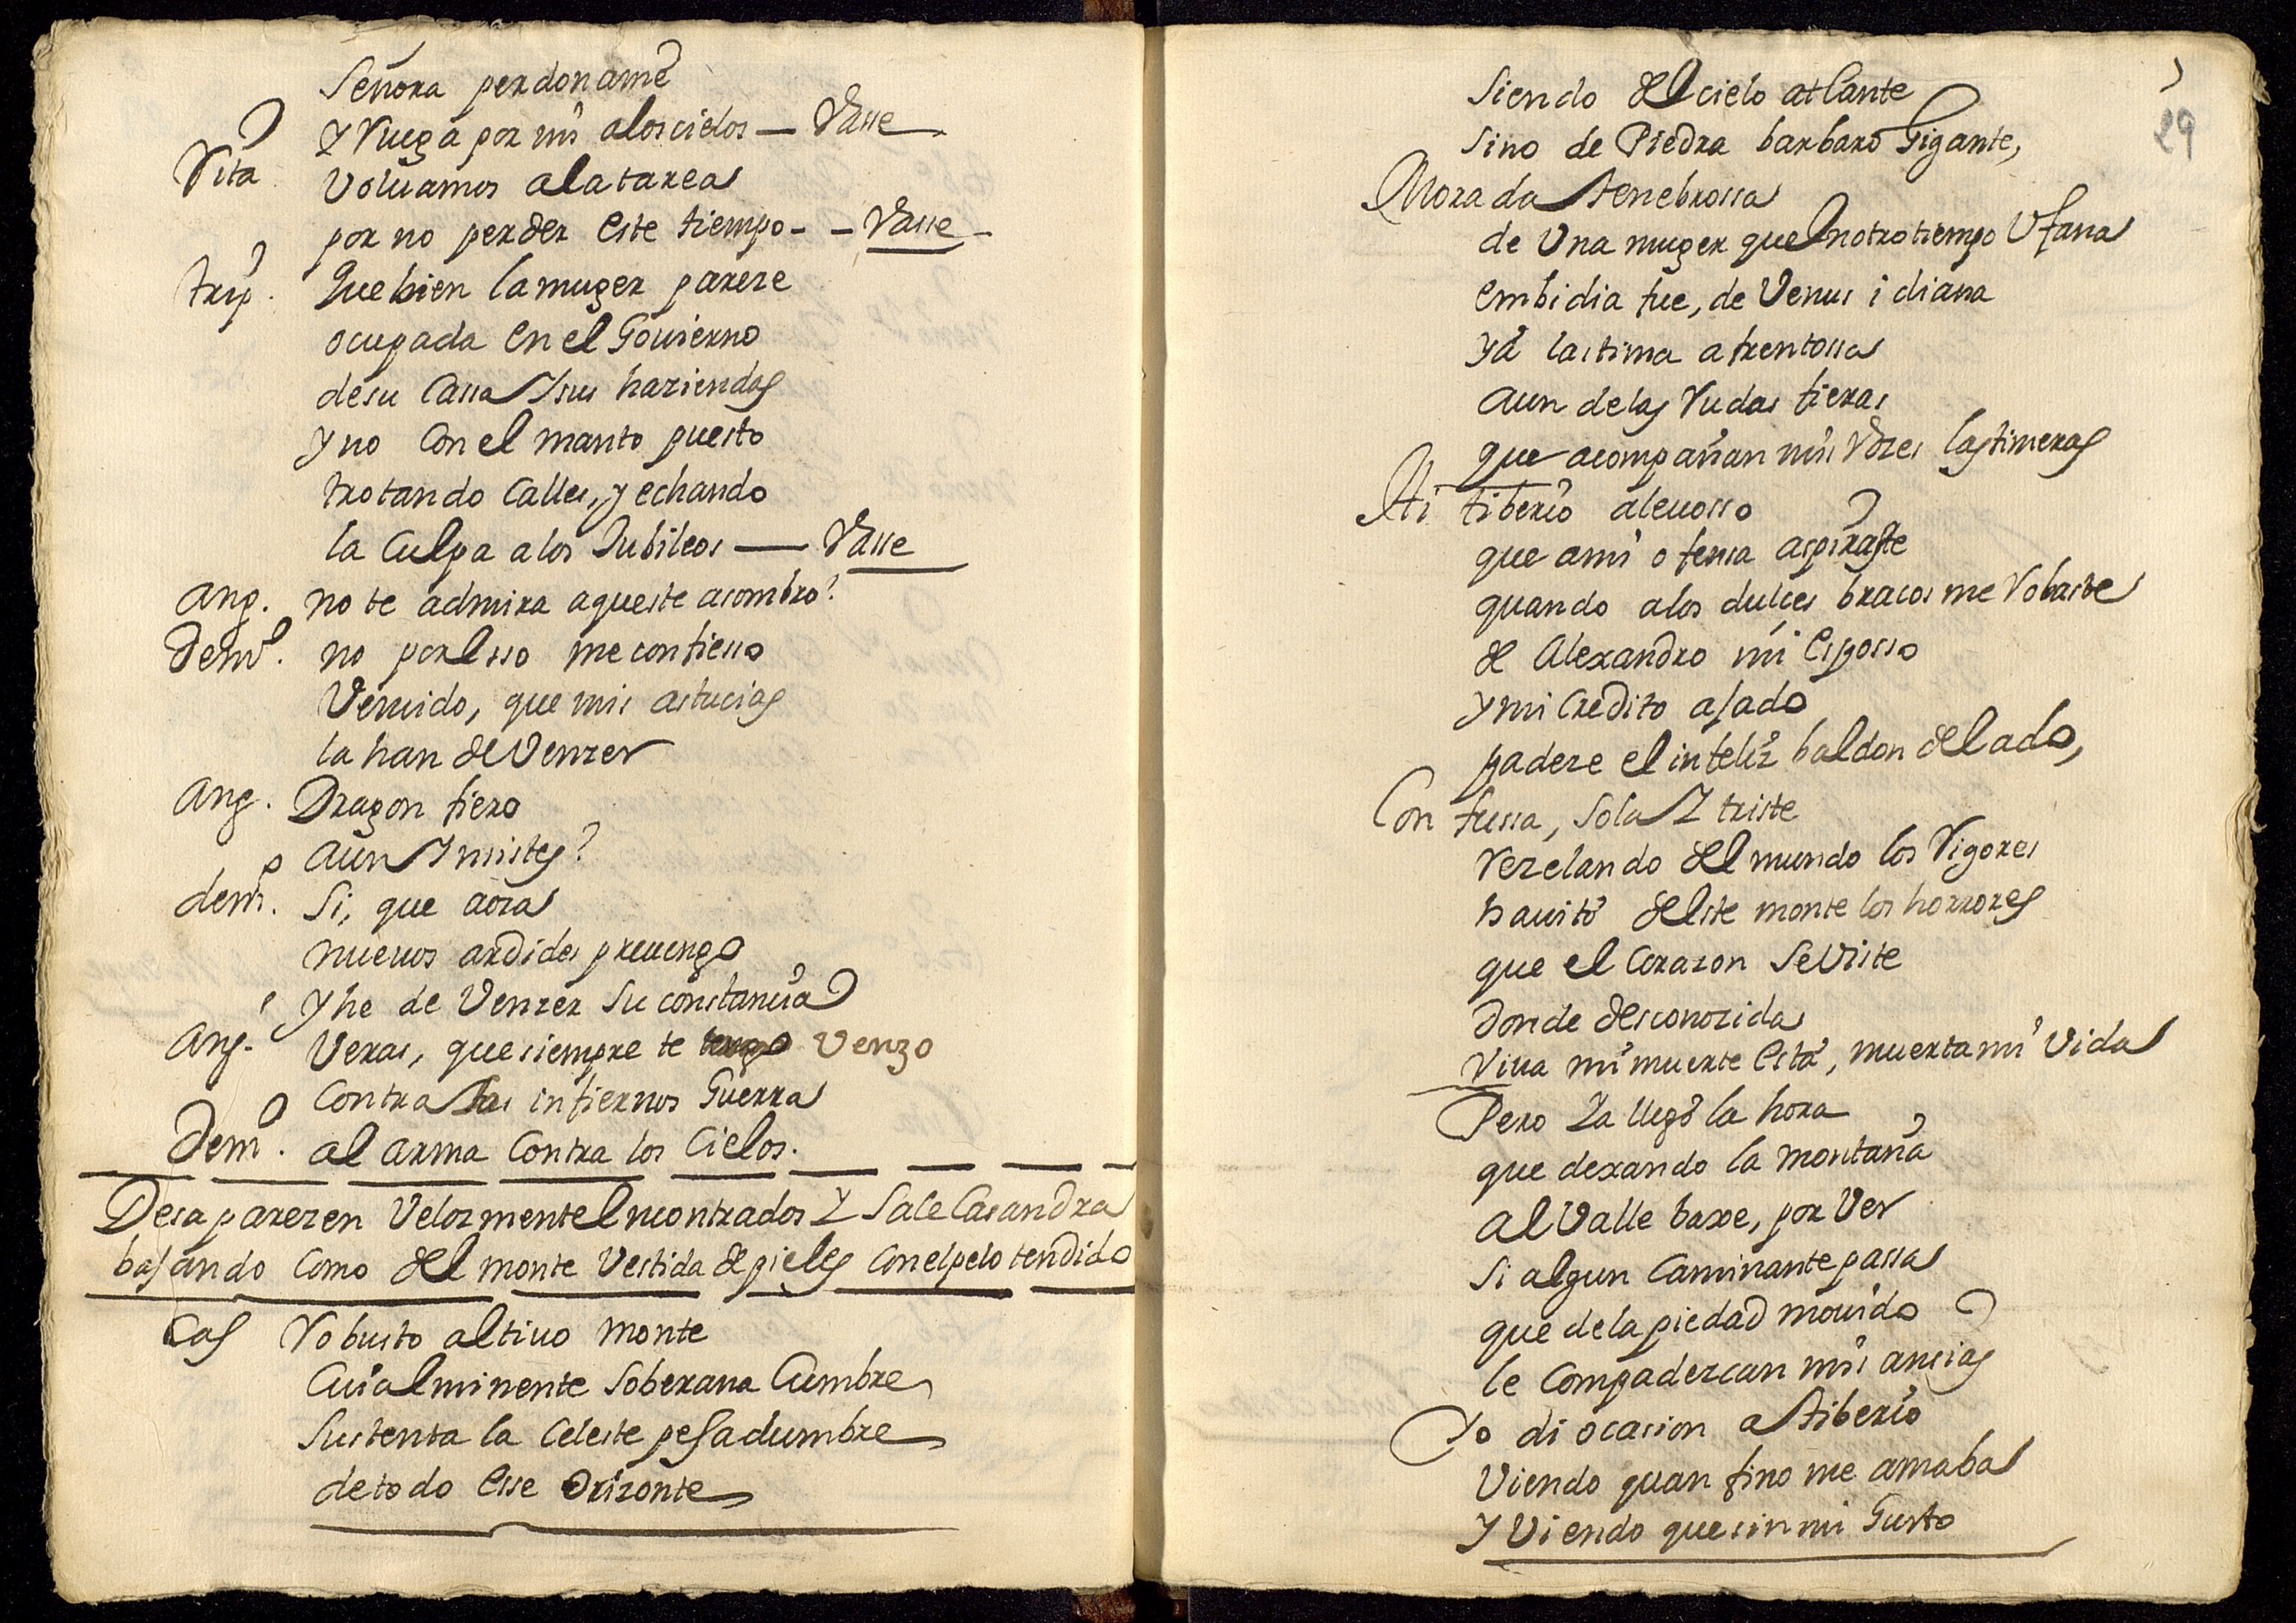 Señora perdoname
Y Ruega por mi alos cielos — Vasse
Rita Voluamos ala tarea
por no perder este tiempo - - Vasse
trip. Que bien la muger pareze
ocupada en el Gouierno
de su Cassa Y sus haziendas
y no con el manto puesto
trotando Calles, y echando
la Culpa a los Jubileos — Vasse
Ang. no te admira aqueste asombro?
Demo. no por esso me confiesso
Vencido, que mis astucias
la han de Venzer
Ang. Dragon fiero
aun Insistes?
demo. Si, que aora
nueuos ardides preuengo
Y he de Venzer su constancia
Ang. Veras, que siempre te venzo
Contra tus infiernos Guerra
Demo. al arma Contra los Cielos.
Desaparezen Velozmente encontrados Y Sale Casandra
bajando como del monte Vestida de pieles con el pelo tendido
Cas Robusto altiuo monte
Cuia eminente Soberana Cumbre
Sustenta la Celeste pesadumbre
de todo esse Orizonte
29
Siendo del cielo atlante
Sino de Piedra barbaro Gigante,
Morada tenebrossa
de Una muger que en otro tiempo Ufana
embidia fue, de Venus i diana
ya lastima afrentossa
aun de las Rudas fieras
que acompañan mis Vozes lastimeras
A ti tiberio aleuosso
que a mi ofensa aspiraste
quando a los dulces bracos me Robaste
de Alexandro mi esposso
y mi credito ajado
padeze el infeliz baldon del ado,
Confussa, sola Y triste
Rezelando del mundo los Rigores
hauito deste monte los horrores
que el Corazon se Viste
donde desconozida
Viua mi muerte esta, muerta mi Vida
Pero Ya llegò la hora
que dexando la montaña
al Valle baxe, por Ver
si algun Caminante passa
que de la piedad mouido
le Compadezcan mis ansias
Yo di ocasion a tiberio
Viendo quan fino me amaba
Y Viendo que sin mi Gusto